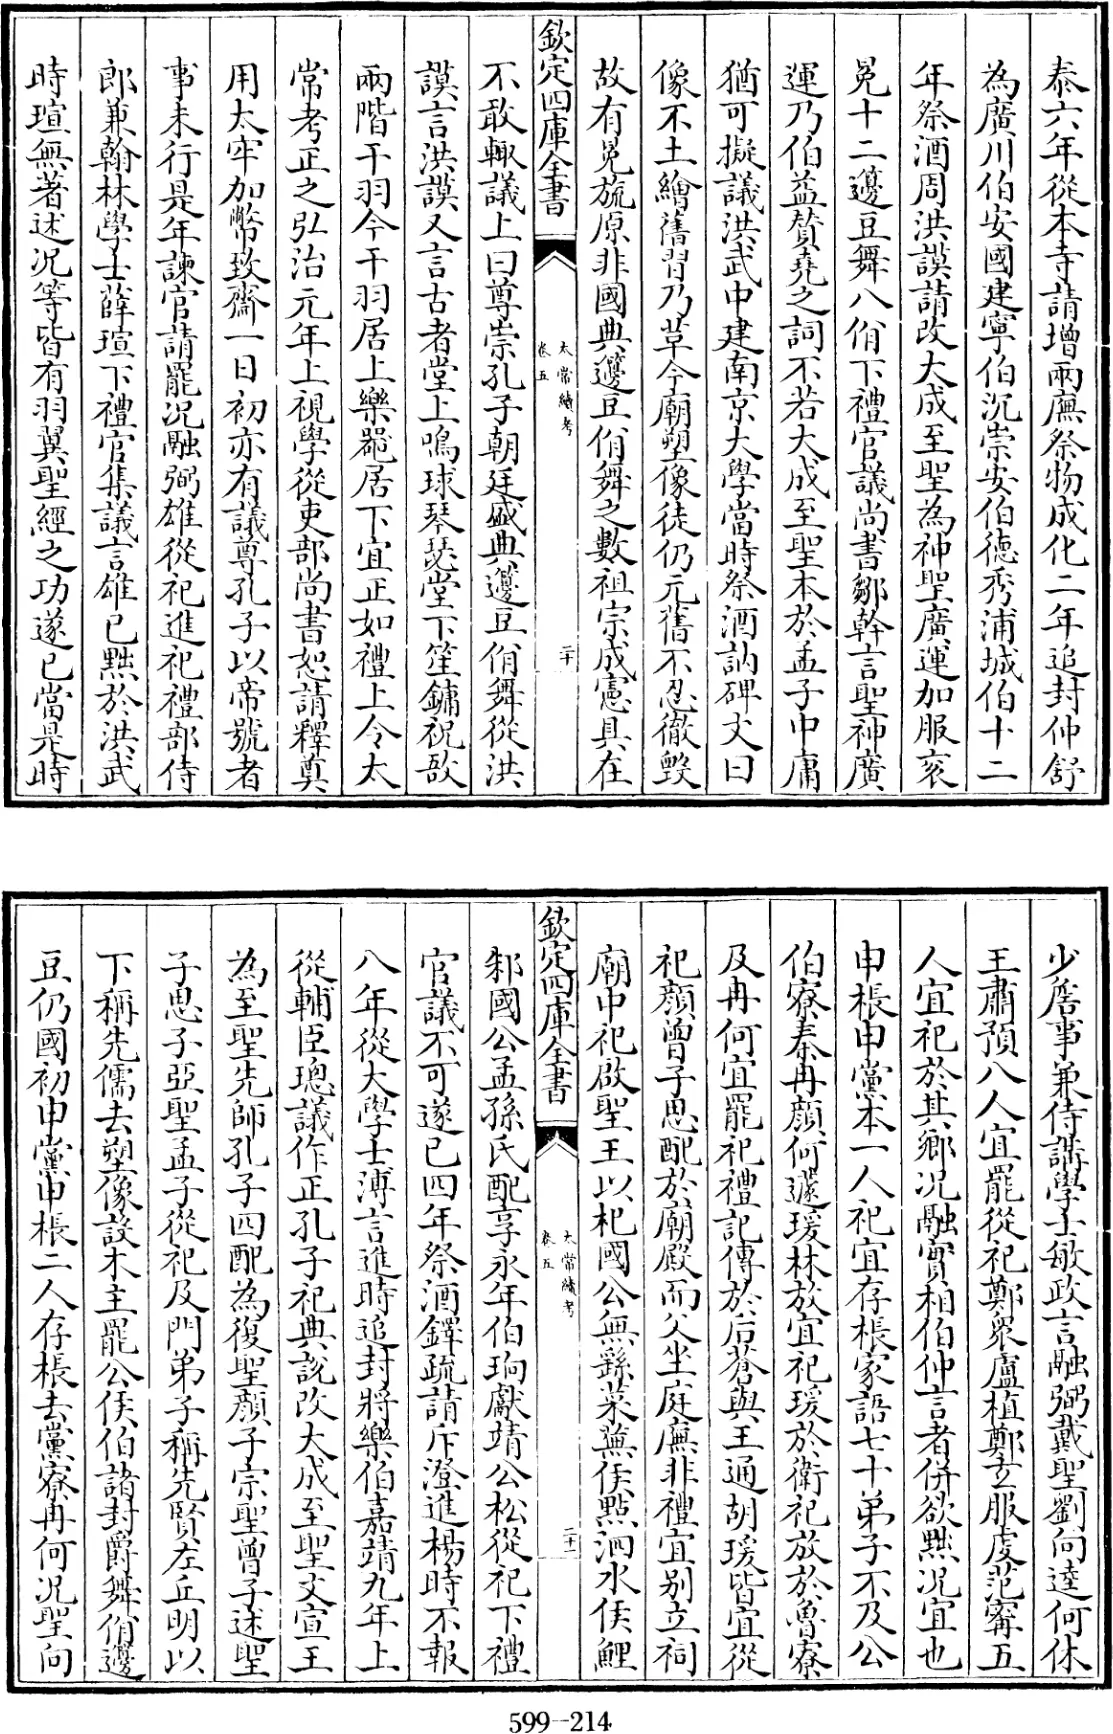 泰六年從本寺請增兩廡祭物成化二年追封仲舒
為廣川伯安國建寧伯沉崇安伯德秀浦城伯十二
年祭酒周洪謨請改大成至聖為神聖廣運加服衮
冕十二籩豆舞八佾下禮官議尚書鄒幹言聖神廣
運乃伯益贊堯之詞不若大成至聖本於孟子中庸
猶可擬議洪武中建南京大學當時祭酒訥碑文曰
像不土繪舊習乃革今廟塑像徒仍元舊不忍徹毀
故有冕旒原非國典籩豆佾舞之數祖宗成憲具在
欽定四庫全書
太常續考
卷五
二十
不敢輙議上曰尊崇孔子朝廷盛典籩豆佾舞從洪
謨言洪謨又言古者堂上鳴球琴瑟堂下笙鏞柷敔
兩階干羽今干羽居上樂器居下宜正如禮上令太
常考正之弘治元年上視學從吏部尚書恕請釋奠
用太牢加幣致齋一日初亦有議尊孔子以帝號者
事未行是年諫官請罷况融弼雄從祀進祀禮部侍
郎兼翰林學士薛瑄下禮官集議言雄已黜於洪武
時瑄無著述况等皆有羽翼聖經之功遂已當是時
少詹事兼侍講學士敏政言融弼戴聖劉向逵何休
王肅預八人宜罷從祀鄭眾盧植鄭玄服虔范甯五
人宜祀於其鄉况融實相伯仲言者併欲黜况宜也
申棖申黨本一人祀宜存棖家語七十弟子不及公
伯寮秦冉顏何蘧瑗林放宜祀瑗於衛祀放於魯寮
及冉何宜罷祀禮記傳於后蒼與王通胡瑗皆宜從
祀顏曾子思配於廟殿而父坐庭廡非禮宜别立祠
廟中祀啟聖王以杞國公無繇萊蕪侯點泗水侯鯉
欽定四庫全書
太常續考
卷五
二十一
邾國公孟孫氏配享永年伯珦獻靖公松從祀下禮
官議不可遂已四年祭酒鐸疏請斥澄進楊時不報
八年從大學士溥言進時追封將樂伯嘉靖九年上
從輔臣璁議作正孔子祀典說改大成至聖文宣王
為至聖先師孔子四配為復聖顏子宗聖曾子述聖
子思子亞聖孟子從祀及門弟子稱先賢左丘明以
下稱先儒去塑像設木主罷公侯伯諸封爵舞佾籩
豆仍國初申黨申棖二人存棖去黨寮冉何况聖向
599-214